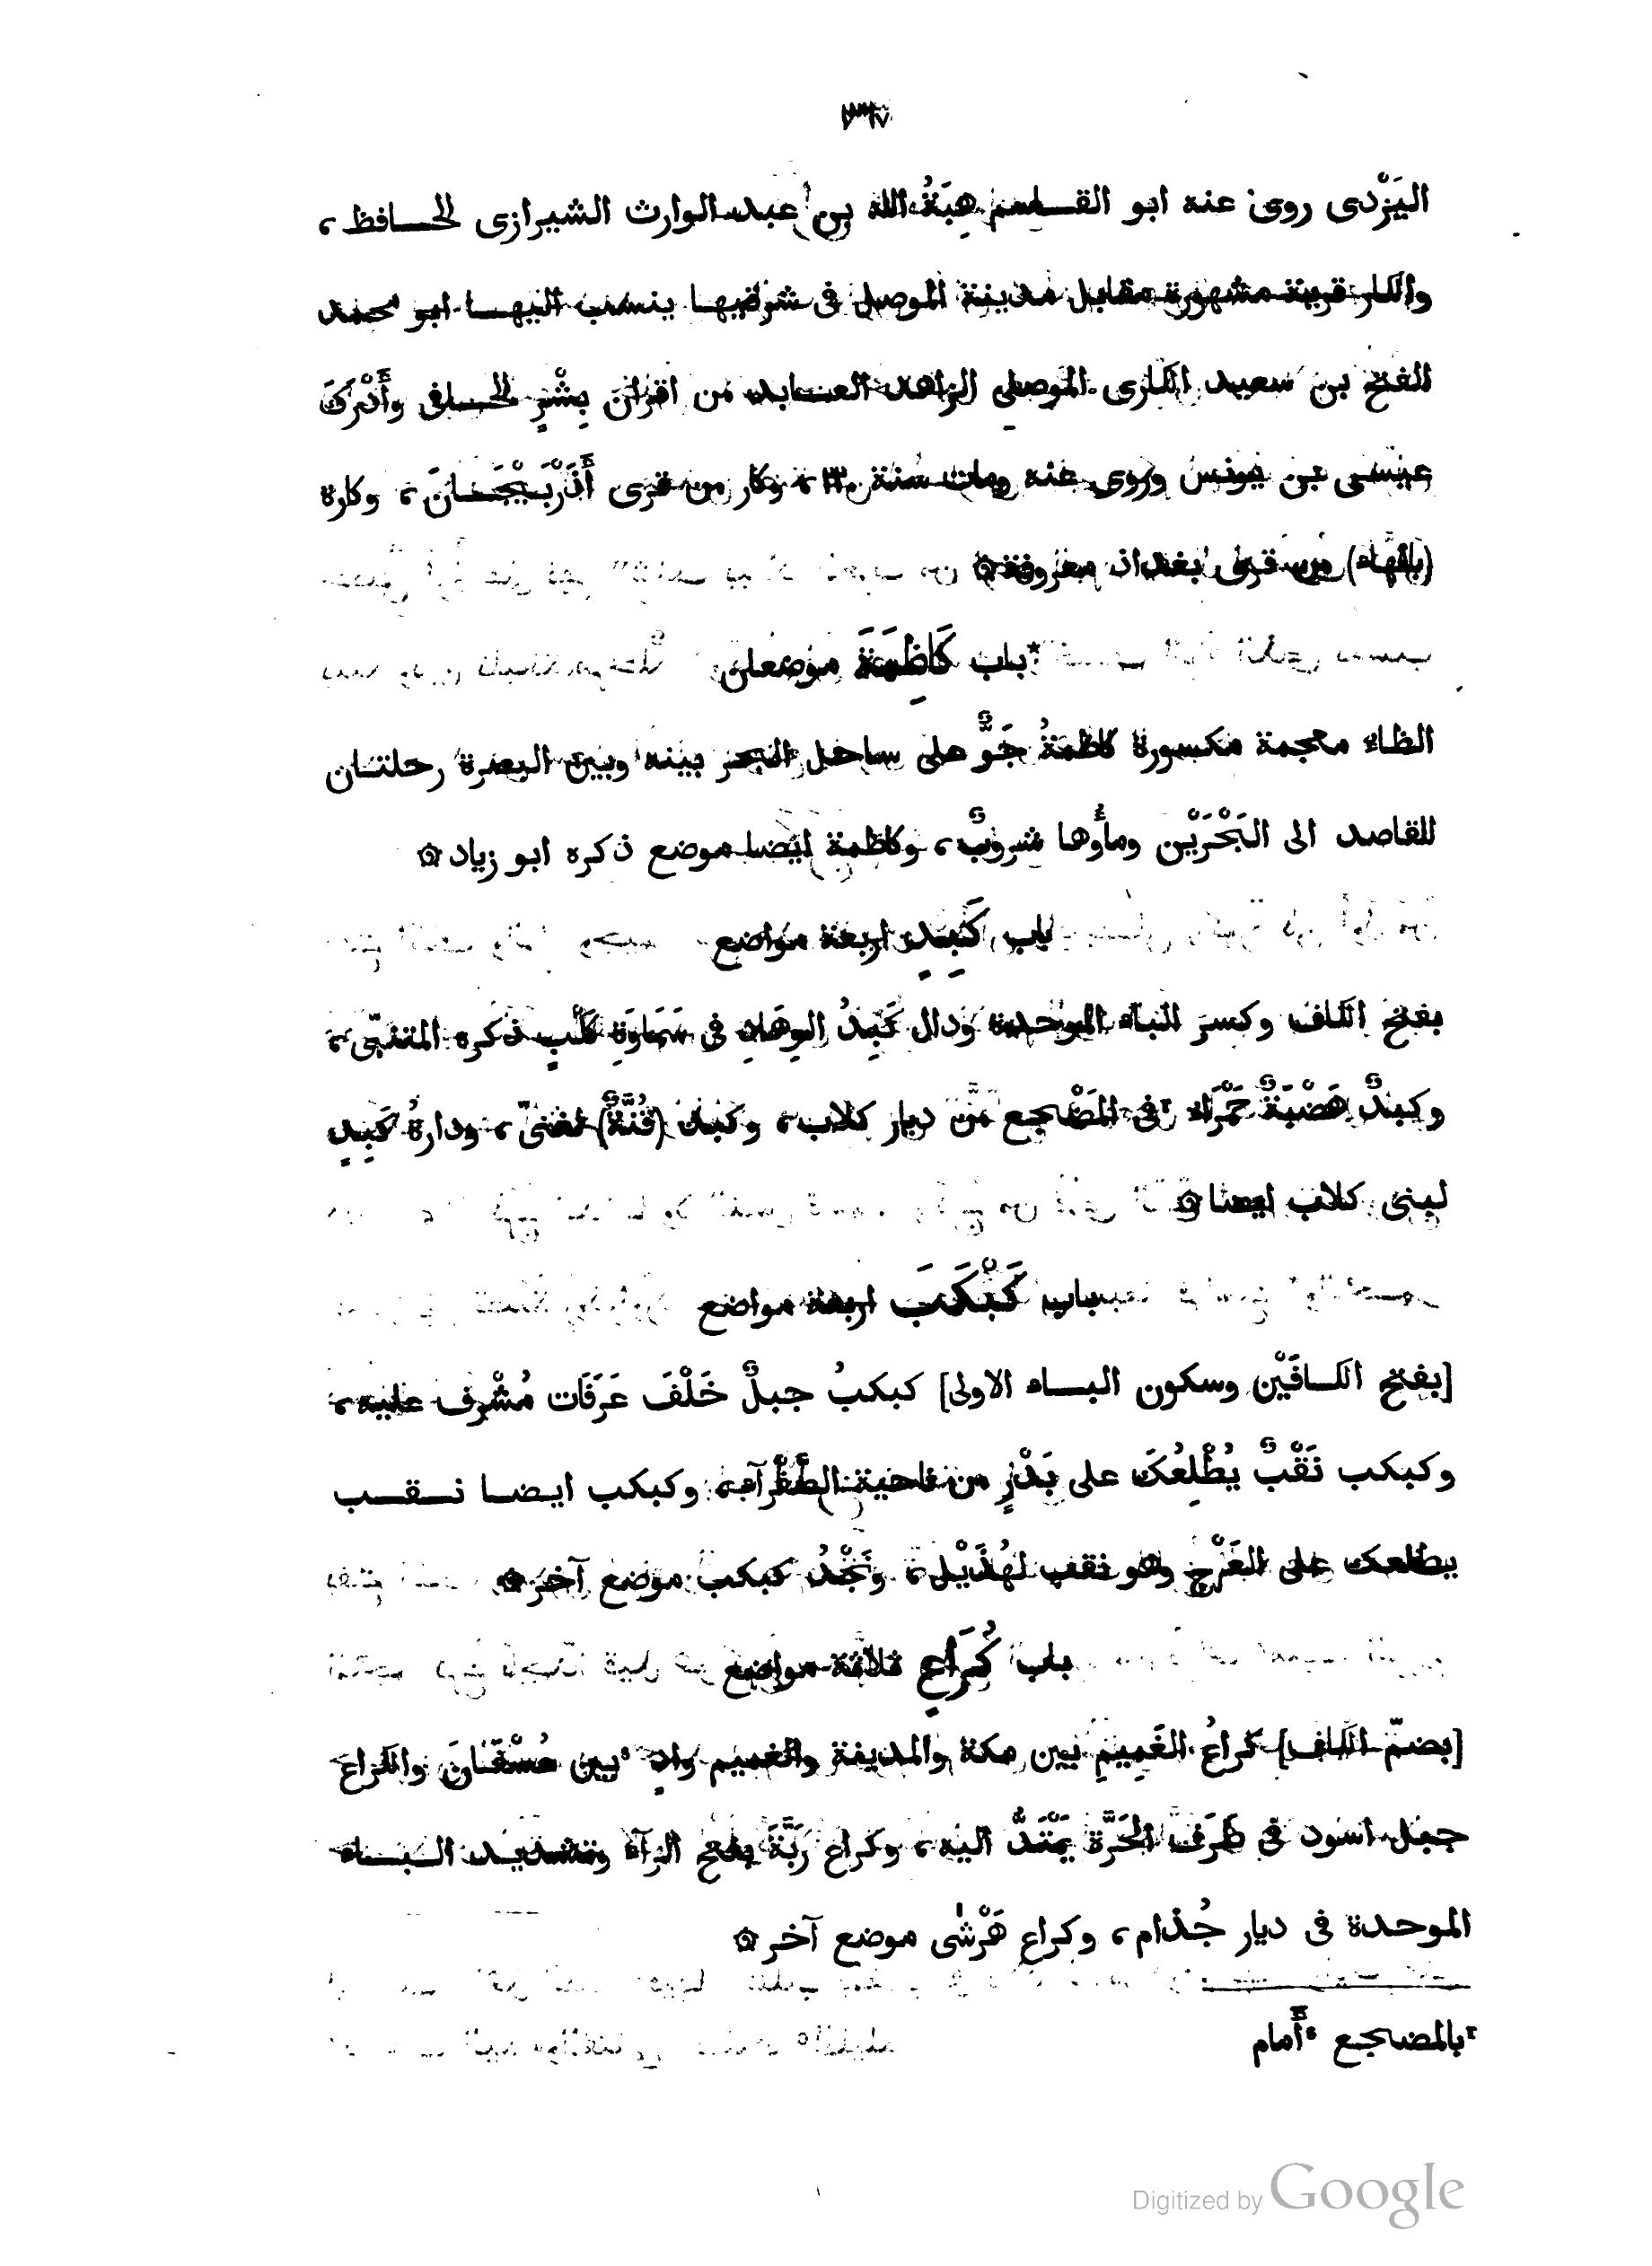 اليَزْدى روى عنه ابو القاسم هِبَةُ الله بن عبد الوارث الشيرازى الحافظ،
والكار قرية مشهورة مقابل مدينة الموصل فى شرقيها ينسب اليها ابو محمد
الفتح بن سعيد الكارى الموصلى الزاهد العابد من اقران بِشْرٍ الحافى وأَدْرَكَ
عيسى بن يونس وروى عنه ومات سنة ٢٣٠، وكار من قرى أَذَرْبَيْجَانَ، وكارة
(بالهاء) من قرى بغداذ معروفة۞
*باب كَاظِمَةَ موضعان
الظاء معجمة مكسورة كاظمةُ جَوٌّ على ساحل البحر بينه وبين البصرة رحلتان
للقاصد الى البَحْرَيْن وماؤها شروبٌ، وكاظمة ايضا موضع ذكره ابو زياد۞
باب كَبِدٍ اربعة مواضع
بفتح الكاف وكسر الباء الموحدة ودال كَبِدُ الوِهَادِ فى سَمَاوَةِ كَلْبٍ ذكره المتنبّى،
وكبدٌ هَضْبَةٌ حَمْرَاء ٢فى المَضْجع من ديار كلاب، وكبد (قُنَّةٌ) لغنىّ، ودارةُ كَبِدٍ
لبنى كلاب ايضا۞
باب كَبْكَبَ اربعة مواضع
[بفتح الكافَيْن وسكون الباء الاولى] كبكبُ جبلٌ خَلْفَ عَرَفَات مُشْرِف عليه،
وكبكب نَقْبٌ يُطْلِعُكَ على بَدْرٍ من ناحية الصَّفْرآء، وكبكب ايضا نقب
يطلعك على العَرْج وهو نقب لهُذَيْل، ونَجْدُ كبكب موضع آخر۞
باب كُرَاعٍ ثلاثة مواضع
[بضمّ الكاف] كراعُ الغَمِيمِ بين مكة والمدينة والغميم وادٍ ٤بين عُسْفَانَ والكراع
جبل اسود فى طَرَف الحَرَّة يَمْتَدُّ اليه، وكراع رَبَّةَ بفتح الرآء وتشديد الباء
الموحدة فى ديار جُذام، وكراع هَرْشٰى موضع آخر۞
٢بالمضجع ٤أَمام
Digitized by Google